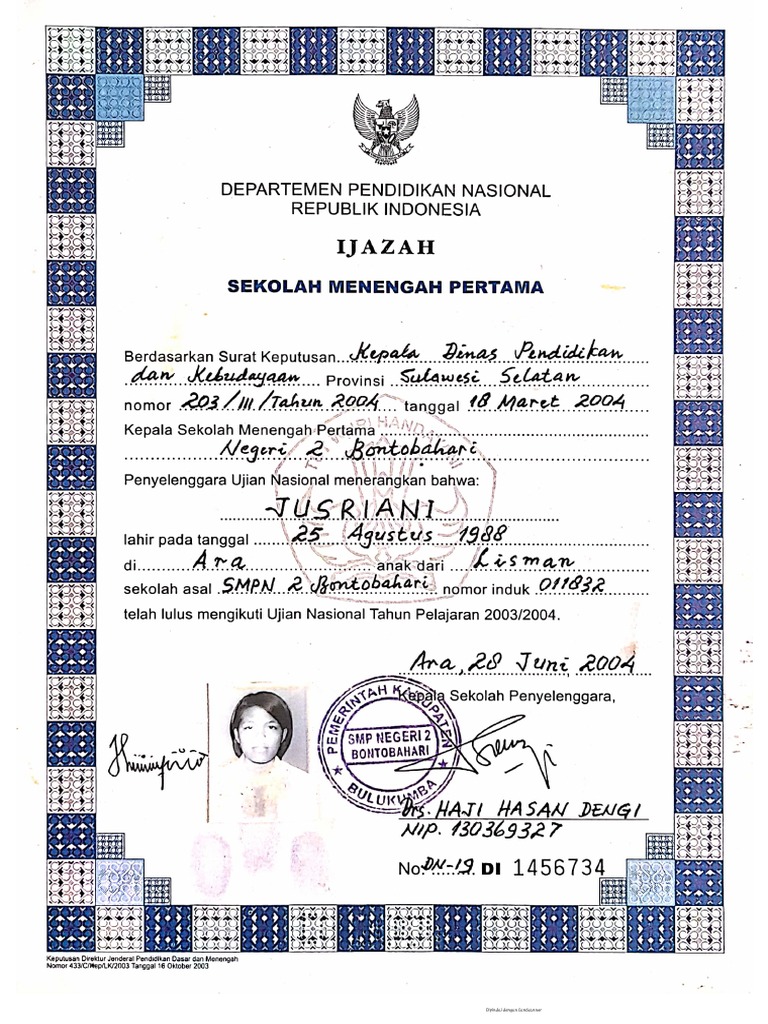 DEPARTEMEN PENDIDIKAN NASIONAL
REPUBLIK INDONESIA
IJAZAH
SEKOLAH MENENGAH PERTAMA
Berdasarkan Surat Keputusan Kepala Dinas Pendidikan
dan Kebudayaan Provinsi Sulawesi Selatan
nomor 203/III/Tahun 2004 tanggal 18 Maret 2004
Kepala Sekolah Menengah Pertama
Negeri 2 Bontobahari
Penyelenggara Ujian Nasional menerangkan bahwa:
JUSRIANI
lahir pada tanggal 25 Agustus 1988
di Ara anak dari Lisman
sekolah asal SMPN 2 Bontobahari nomor induk 011832
telah lulus mengikuti Ujian Nasional Tahun Pelajaran 2003/2004.
Ara, 28 Juni, 2004
Kepala Sekolah Penyelenggara,
PEMERINTAH KABUPATEN
SMP NEGERI 2
BONTOBAHARI
BULUKUMBA
Drs. HAJI HASAN DENGI
NIP. 130369327
No. DN-19 DI 1456734
Keputusan Direktur Jenderal Pendidikan Dasar dan Menengah
Nomor 433/C/Kep/LK/2003 Tanggal 16 Oktober 2003